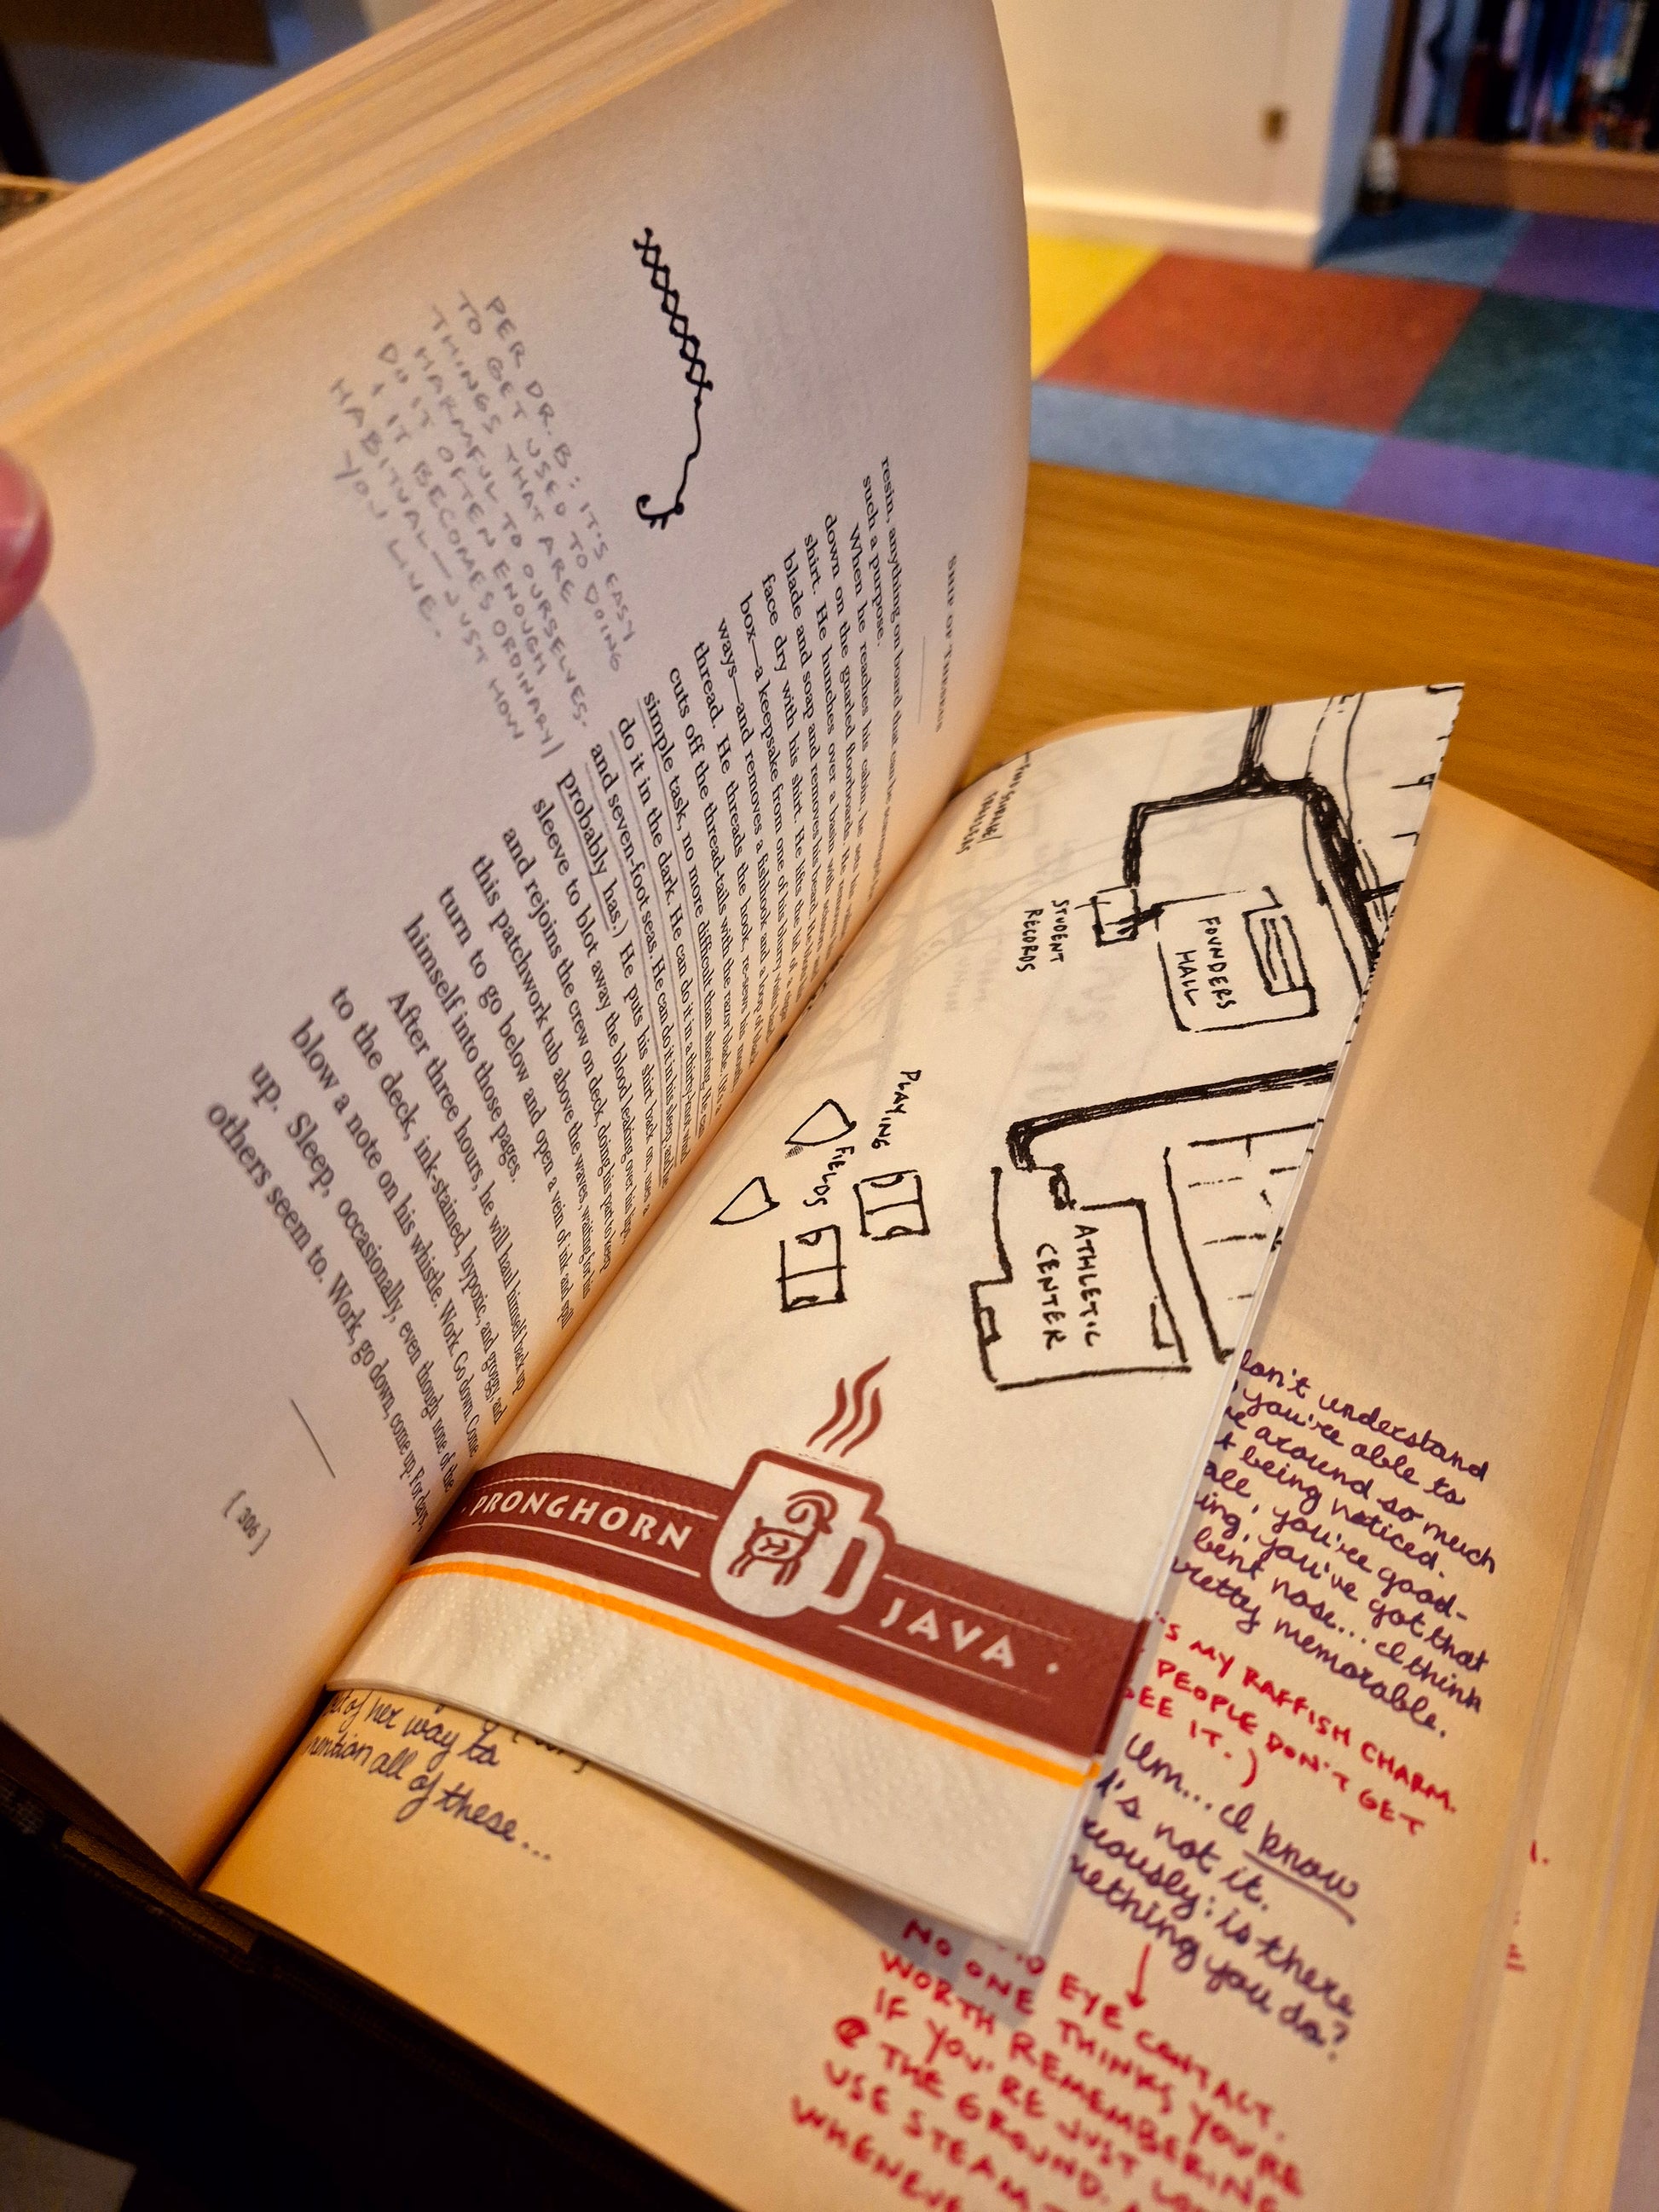 SHIP OF THESEUS
resin, anything on board that can be
such a purpose.
When he reaches his cabin, he sets his
down on the gnarled floorboards. He
shirt. He hunches over a basin with
blade and soap and removes his beard.
face dry with his shirt. He lifts the lid of a
box—a keepsake from one of his
ways—and removes a fishhook and a loop of black
thread. He threads the hook, re-sews his mouth,
cuts off the thread-tails with the razor blade. (It's a
simple task, no more difficult than shaving. He can
do it in the dark. He can do it in a thirty-knot wind
and seven-foot seas. He can do it in his sleep, and he
probably has.) He puts his shirt back on, uses a
sleeve to blot away the blood leaking over his lips,
and rejoins the crew on deck, doing his part to keep
this patchwork tub above the waves, waiting for his
turn to go below and open a vein of ink and spill
himself into those pages.
After three hours, he will haul himself back up
to the deck, ink-stained, hyponic, and groggy, and
blow a note on his whistle. Work. Go down. Come
up. Sleep, occasionally, even though none of the
others seem to. Work, go down, come up. For days,
[ 306 ]
PER DR. B: IT'S EASY
TO GET USED TO DOING
THINGS THAT ARE
HARMFUL TO OURSELVES.
DO IT OFTEN ENOUGH
& IT BECOMES ORDINARY/
HABITUAL—JUST HOW
YOU LIVE.
STUDENT
RECORDS
FOUNDERS
HALL
PLAYING
FIELDS
ATHLETIC
CENTER
PRONGHORN JAVA
of her way to
mention all of these...
don't understand
you're able to
around so much
being noticed.
all, you're good-
you've got that
bent nose... I think
pretty memorable.
MY RAFFISH CHARM.
PEOPLE DON'T GET
SEE IT.)
Um... I know
that's not it.
Seriously: is there
something you do?
NO EYE CONTACT.
NO ONE THINKS YOU'RE
WORTH REMEMBERING
IF YOU'RE JUST
@ THE GROUND.
USE STEAM